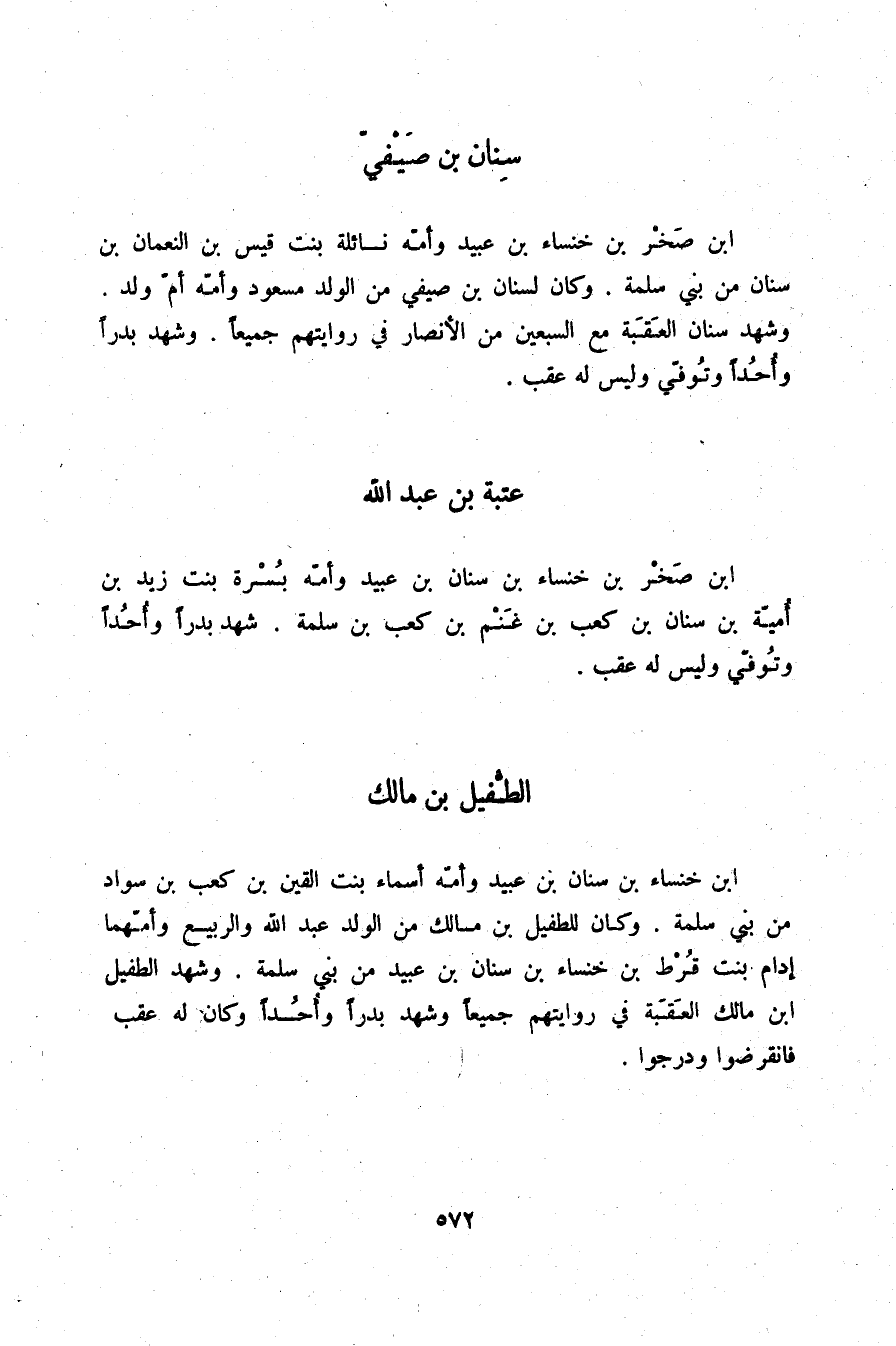 سِنان بن صَيْفيّ
ابن صَخْر بن خنساء بن عبيد وأمّه نائلة بنت قيس بن النعمان بن
سنان من بني سلمة . وكان لسنان بن صيفي من الولد مسعود وأمّه أمّ ولد .
وشهد سنان العَقَبَة مع السبعين من الأنصار في روايتهم جميعاً . وشهد بدراً
وأُحُداً وتُوفّي وليس له عقب .
عتبة بن عبد الله
ابن صَخْر بن خنساء بن سنان بن عبيد وأمّه بُسْرة بنت زيد بن
أُميّة بن سنان بن كعب بن غَنْم بن كعب بن سلمة . شهد بدراً وأُحُداً
وتُوفّي وليس له عقب .
الطُّفيل بن مالك
ابن خنساء بن سنان بن عبيد وأمّه أسماء بنت القين بن كعب بن سواد
من بني سلمة . وكان للطفيل بن مالك من الولد عبد الله والربيع وأمّهما
إدام بنت قُرْط بن خنساء بن سنان بن عبيد من بني سلمة . وشهد الطفيل
ابن مالك العَقَبَة في روايتهم جميعاً وشهد بدراً وأُحُداً وكان له عقب
فانقرضوا ودرجوا .
٥٧٢